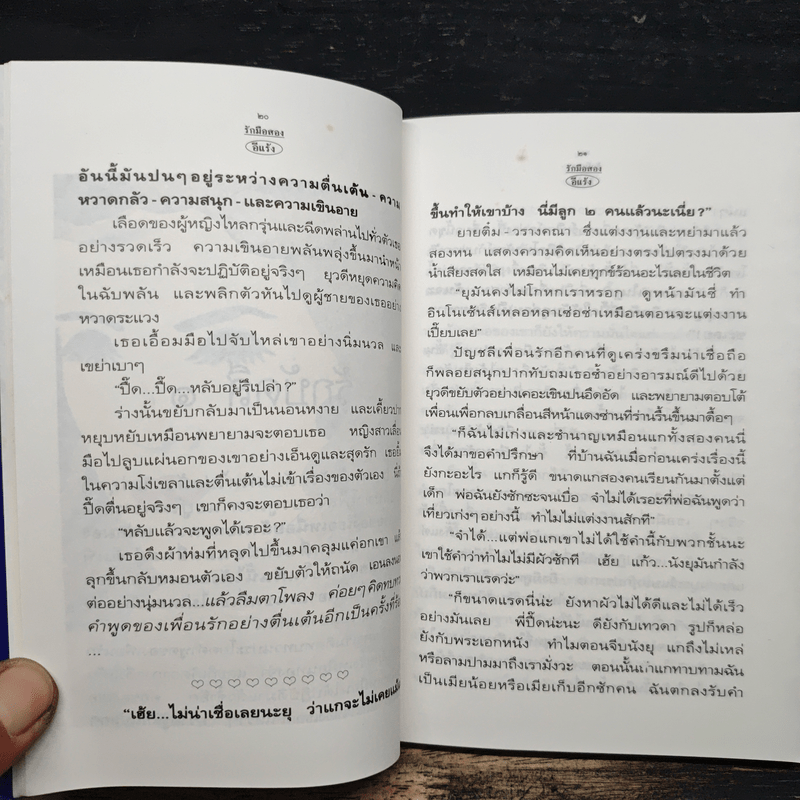 ๒๐
รักมือสอง
อีแร้ง
อันนี้มันปนๆอยู่ระหว่างความตื่นเต้น - ความ
หวาดกลัว - ความสนุก - และความเขินอาย
เลือดของผู้หญิงไหลกรุ่นและฉีดพล่านไปทั่วตัวเธอ
อย่างรวดเร็ว ความเขินอายพลันพลุ่งขึ้นมานำหน้า
เหมือนเธอกำลังจะปฏิบัติอยู่จริงๆ ยุวดีหยุดความคิด
ในฉับพลัน และพลิกตัวหันไปดูผู้ชายของเธออย่าง
หวาดระแวง
เธอเอื้อมมือไปจับไหล่เขาอย่างนิ่มนวล และ
เขย่าเบาๆ
“ปี๊ด...ปี๊ด...หลับอยู่รึเปล่า?”
ร่างนั้นขยับกลับมาเป็นนอนหงาย และเคี้ยวปาก
หยุบหยับเหมือนพยายามจะตอบเธอ หญิงสาวเลื่อน
มือไปลูบแผ่นอกของเขาอย่างเอ็นดูและสุดรัก เธอยิ้ม
ในความโง่เขลาและตื่นเต้นไม่เข้าเรื่องของตัวเอง
ปี๊ดตื่นอยู่จริงๆ เขาก็คงจะตอบเธอว่า
“หลับแล้วจะพูดได้เรอะ?”
เธอดึงผ้าห่มที่หลุดไปขึ้นมาคลุมแค่อกเขา แล้ว
ลุกขึ้นกลับหมอนตัวเอง ขยับตัวให้ถนัด เอนลงนอน
ต่ออย่างนุ่มนวล...แล้วลืมตาโพลง ค่อยๆคิดทบทวน
คำพูดของเพื่อนรักอย่างตื่นเต้นอีกเป็นครั้งที่ร้อย
...
“เฮ้ย...ไม่น่าเชื่อเลยนะยุ ว่าแกจะไม่เคยแม้
๒๑
รักมือสอง
อีแร้ง
ขึ้นทำให้เขาบ้าง นี่มีลูก ๒ คนแล้วนะเนี่ย?”
ยายติ๋ม - วรางคณา ซึ่งแต่งงานและหย่ามาแล้ว
สองหน แสดงความคิดเห็นอย่างตรงไปตรงมาด้วย
น้ำเสียงสดใส เหมือนไม่เคยทุกข์ร้อนอะไรเลยในชีวิต
“ยุมันคงไม่โกหกเราหรอก ดูหน้ามันซี่ ทำ
อินโนเซ้นส์เหลอหลาเซ่อซ่าเหมือนตอนจะแต่งงาน
เปี๊ยบเลย”
ปัญชลีเพื่อนรักอีกคนที่ดูเคร่งขรึมน่าเชื่อถือ
ก็พลอยสนุกปากทับถมเธอซ้ำอย่างอารมณ์ดีไปด้วย
ยุวดีขยับตัวอย่างเคอะเขินปนอึดอัด และพยายามตอบโต้
เพื่อนเพื่อกลบเกลื่อนสีหน้าแดงซ่านที่ร่านรื้นขึ้นมาดื้อๆ
“ก็ฉันไม่เก่งและชำนาญเหมือนแกทั้งสองคนนี่
จึงได้มาขอคำปรึกษา ที่บ้านฉันเมื่อก่อนเคร่งเรื่องนี้
ยังกะอะไร แกก็รู้ดี ขนาดแกสองคนเรียนกันมาตั้งแต่
เด็ก พ่อฉันยังซักซะจนเบื่อ จำไม่ได้เรอะที่พ่อฉันพูดว่า
เที่ยวเก่งๆอย่างนี้ ทำไมไม่แต่งงานสักที”
“จำได้...แต่พ่อแกเขาไม่ได้ใช้คำนี้กับพวกชั้นนะ
เขาใช้คำว่าทำไมไม่มีผัวซักที เฮ้ย แก้ว...นังยุมันกำลัง
ว่าพวกเราแรดว่ะ”
“ก็ขนาดแรดนี่น่ะ ยังหาผัวไม่ได้ดีและไม่ได้เร็ว
อย่างมันเลย พี่ปี๊ดน่ะนะ ดียังกับเทวดา รูปก็หล่อ
ยังกับพระเอกหนัง ทำไมตอนจีบนังยุ แกถึงไม่เหล่
หรือลามปามมาถึงเรามั่งวะ ตอนนั้นถ้าแกทาบทามฉัน
เป็นเมียน้อยหรือเมียเก็บอีกซักคน ฉันตกลงรับคำ